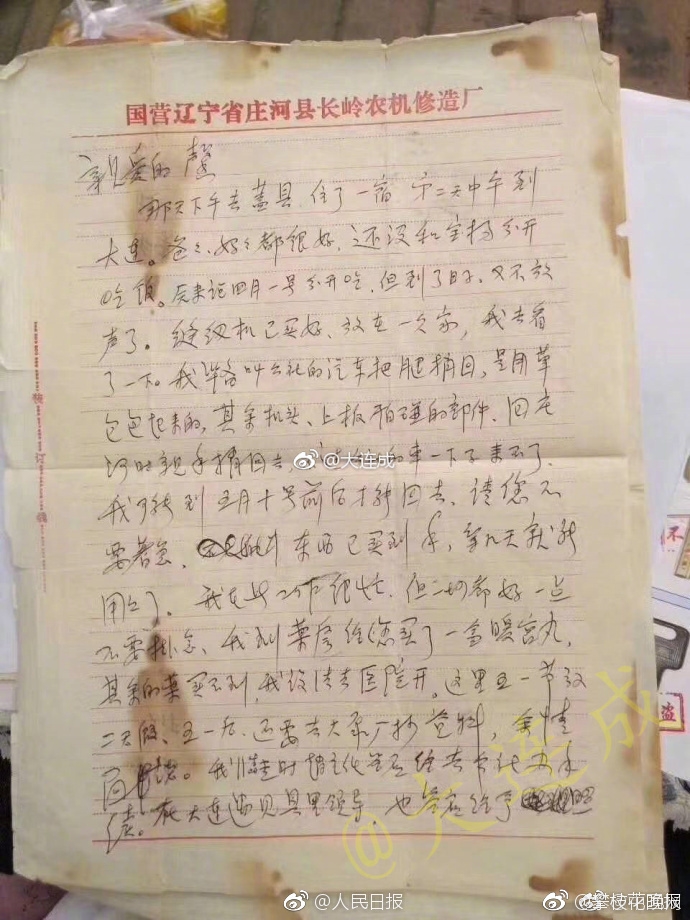 国营辽宁省庄河县长岭农机修造厂
亲爱的馨
那天下午去盖县,住了一宿,第二天中午到
大连。爸爸、妈妈都很好,还没和宝 分开
吃饭。后来说四月一号分开吃,但到了日子,又不放
声了。缝纫机已买好,放在一 家,我去看
了一下。我准备叫公社的汽车把腿捎回,是用草
包包起来的,其余机头、上板怕碰的部件,回庄
河时亲手捎回去, 车一下子来不了,
我可能到五月十号前后才能回去,请您不
要着急, 东西已买到手,等几天就能
用上了。我在此工作很忙,但一切都好,一点
不要挂念,我到药房给您买了一盒暖宫丸,
其余的药买不到,我设法去医院开。这里五一节放
二天假,五一后,还要去大 厂抄资料,余情
面 。我临走时 主任答应给去 社办手
续。在大连遇见县里领导,也答应给予
装订线
@大连成
@大连成
@人民日报
@攀枝花晚报